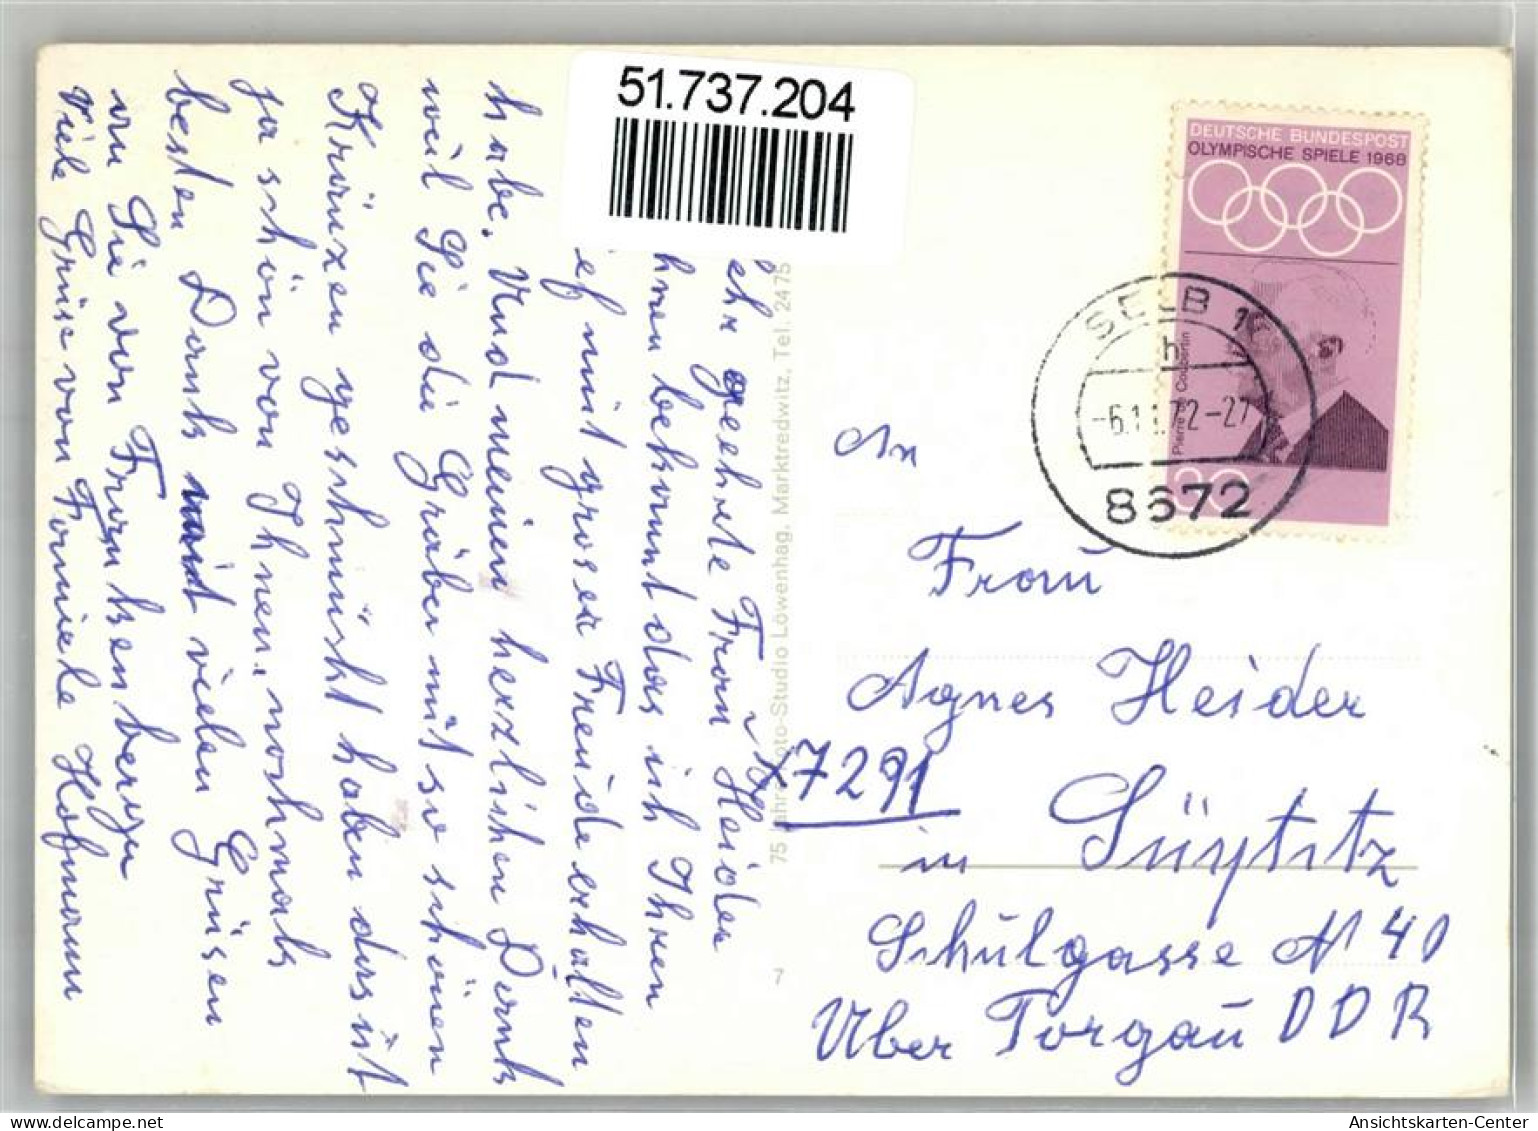 51.737.204
DEUTSCHE BUNDESPOST
OLYMPISCHE SPIELE 1968
Pierre de Coubertin
SELB 1
-6.11.72-27
8672
ehr geehrte Frau Heider
hnen bekannt das ich Ihnen
ief mit groser Freude erhalten
habe. Und meinen herzlichen Dank
weil Sie die Gräber mit so schönen
Kränzen geschmückt haben das ist
ja schön von Ihnen, nochmals
besten Dank mit vielen Grüsen
an Sie von Frankenbergen
viele Grüse von Familie Hofmann
75 Jahre Foto-Studio Löwenhag, Marktredwitz, Tel. 2475
7
An
Frau
Agnes Heider
X 7291
in Süptitz
Schulgasse N 40
Über Torgau DDR
Ansichtskarten-Center